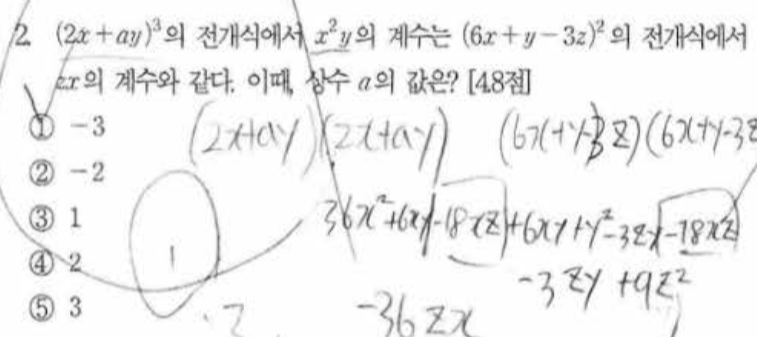 2. (2x+ay)³의 전개식에서 x²y의 계수는 (6x+y-3z)²의 전개식에서
zx의 계수와 같다. 이때, 상수 a의 값은? [4.8점]
① -3
② -2
③ 1
④ 2
⑤ 3
(2x+ay)(2x+ay) (6x+y-3z)(6x+y-3z
36x²+6xy-18xz+6xy+y²-3zy-18xz
-3zy+9z²
-36zx